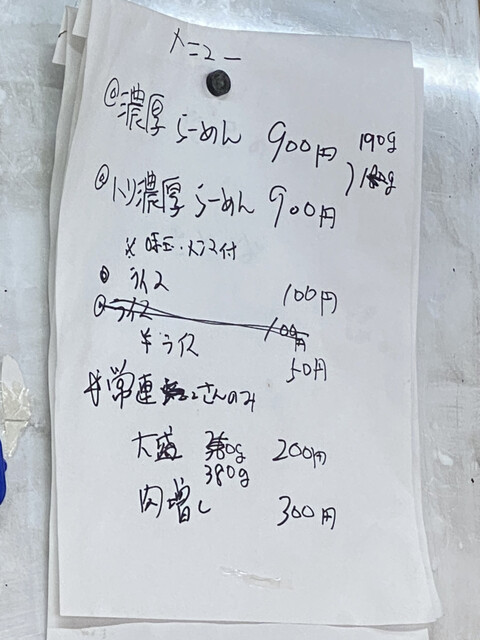 メニュー
◎濃厚らーめん 900円 190g
)180g
◎トリ濃厚らーめん 900円
※味玉・メンマ付
◎ライス 100円
◎ライス 100円
半ライス 50円
※常連さんのみ
大盛 380g 200円
380g
肉増し 300円